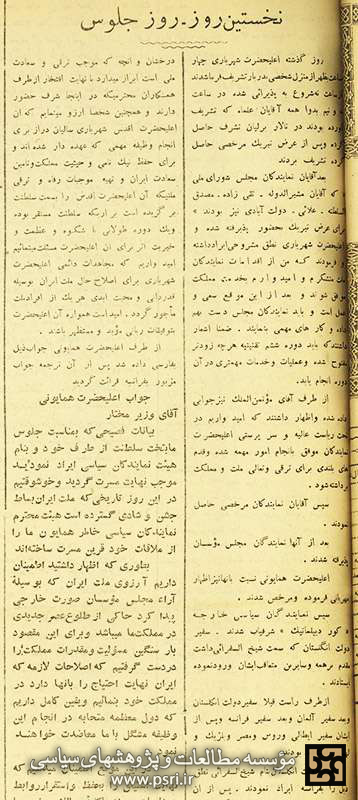 نخستین روز - روز جلوس
روز گذشته اعلیحضرت شهریاری چهار
ساعت بظهر از منزل شخصی بدربار تشریف فرما شدند
شروع به پذیرائی شده در ساعت
ونیم بدواً همه آقایان علماء که تشریف
آورده بودند در تالار برلیان تشرف حاصل
کرده پس از عرض تبریک مرخصی حاصل
کرده تشریف بردند
بعد آقایان نمایندگان مجلس شورای ملی
که آقایان مشیرالدوله - تقی زاده - مصدق
السلطنه - علائی - دولت آبادی نیز بودند
برای عرض تبریک بحضور پذیرفته شده و
اعلیحضرت شهریاری نطق مشروحی ایراد داشته
و فرمودند که من از اقدامات نمایندگان
متشکرم و امیدوارم بخدمت مملکت
موفق شوند و بعد از این موقع سعی و
عمل است و باید نمایندگان مجلس دست بهم
داده و کار های مهمی بنمایند . ضمناً اشعار
داشتند که باید دوره ششم تقنینیه هرچه زودتر
مفتوح شده وعملیات وخدمات مهمتری در آن
دوره انجام یابد .
از طرف آقای مؤتمن الملک نیز جوابی
داده شده واظهار داشتند که امید واریم در
تحت ریاست عالیه و سر پرستی اعلیحضرت
نمایندگان موفق بانجام امور مهمه شده وقدم
های بلندی برای ترقی وتعالی ملت و مملکت
برداشته شود .
سپس آقایان نمایندگان مرخصی حاصل
نمودند .
بعد از آنها نمایندگان مجلس مؤسسان
پذیرفته شدند .
اعلیحضرت همایونی نسبت بانها نیز اظهار
مهربانی فرموده ومرخص شدند .
سپس نمایندگان سیاسی خارجه
« کور دیپلماتیک » شرفیاب شدند . سفیر
دولت انگلستان که سمت شیخ السفرائی داشت
مقدم برهمه وسایرین متعاقب ایشان ورود نموده
بودند
از طرف راست قبلا سفیر دولت انگلستان
وبعد سفیر آلمان وبعد سفیر فرانسه وپس از
ایشان سفیر ایطالی وروس ومصر وبلژیک و
بودند
شیخ السفرائی نطق
بفرانسه ایراد نمودند . پس از آن
درخشان و آنچه که موجب ترقی و سعادت
ملی است ابراز میدارد با نهایت افتخار از طرف
همکاران محترمیکه در اینجا شرف حضور
دارند و همچنین شخصاً آرزو مینمایم که آن
اعلیحضرت اقدس شهریاری سالیان دراز برای
انجام وظیفه مهمی که عهده دار شده اند و
برای حفظ نیک نامی و حیثیت مملکت وتامین
سعادت ایران و تهیه موجبات رفاه و ترقی
ملتیکه آن اعلیحضرت اقدس را بسمت سلطنت
بر گزیده است بر اریکه سلطنت مستقر بوده
ویک دوره طولانی با شکوه و عظمت و
خیریت اثر برای آن اعلیحضرت مسئلت مینمائیم
امید واریم که مجاهدات دائمی اعلیحضرت
شهریاری برای اصلاح حال ملت ایران بوسیله
قدردانی و محبت ابدی هریک از افراد ملت
مأجور گردد . امید است همواره آن اعلیحضرت
بتوفیقات ربانی مؤید و مستظهر باشند .
از طرف اعلیحضرت همایونی جواب ذیل
بفارسی داده شد پس از آن ترجمه جواب
مزبور بفرانسه قرائت گردید
جواب اعلیحضرت همایونی
آقای وزیر مختار
بیانات فصیحی که بمناسبت جلوس
ما بتخت سلطنت از طرف خود و بنام
هیئت نمایندگان سیاسی ایراد نمودید
موجب نهایت مسرت گردید وخوشوقتیم
در این روز تاریخی که ملت ایران بساط
جشن و شادی گسترده است هیئت محترم
نمایندگان سیاسی خاطر همایون ما را
از ملاقات خود قرین مسرت ساخته اند
بطوری که اظهار داشتید اطمینان
داریم آرزوی ملت ایران که بوسیلهٔ
آراء مجلس مؤسسان صورت خارجی
پیدا کرد حاکی از طلوع عصر جدیدی
در مملکت ما میباشد وبرای این مقصود
بار سنگین مسؤلیت ومقدرات مملکت را
در دست گرفتیم که اصلاحات لازمه که
ایران نهایت احتیاج را بانها دارد در
مملکت خود بنمائیم ویقین کامل داریم
که دول معظمه متحابه در انجام این
وظیفه مشکل با ما معاضدت خواهند
نمود
مؤسسه مطالعات و پژوهشهای سیاسی
www.psri.ir